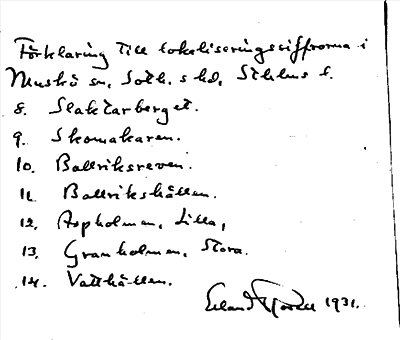 Förklaring till lokaliseringssiffrorna i
Muskö sn, Soth. s hd, Sthlms l.
8. Slaktarberget.
9. Skomakaren.
10. Ballriksreven.
11. Ballrikshällen.
12. Aspholmen, Lilla,
13. Granholmen, Stora.
14. Vatthällen.
Erland 1931.